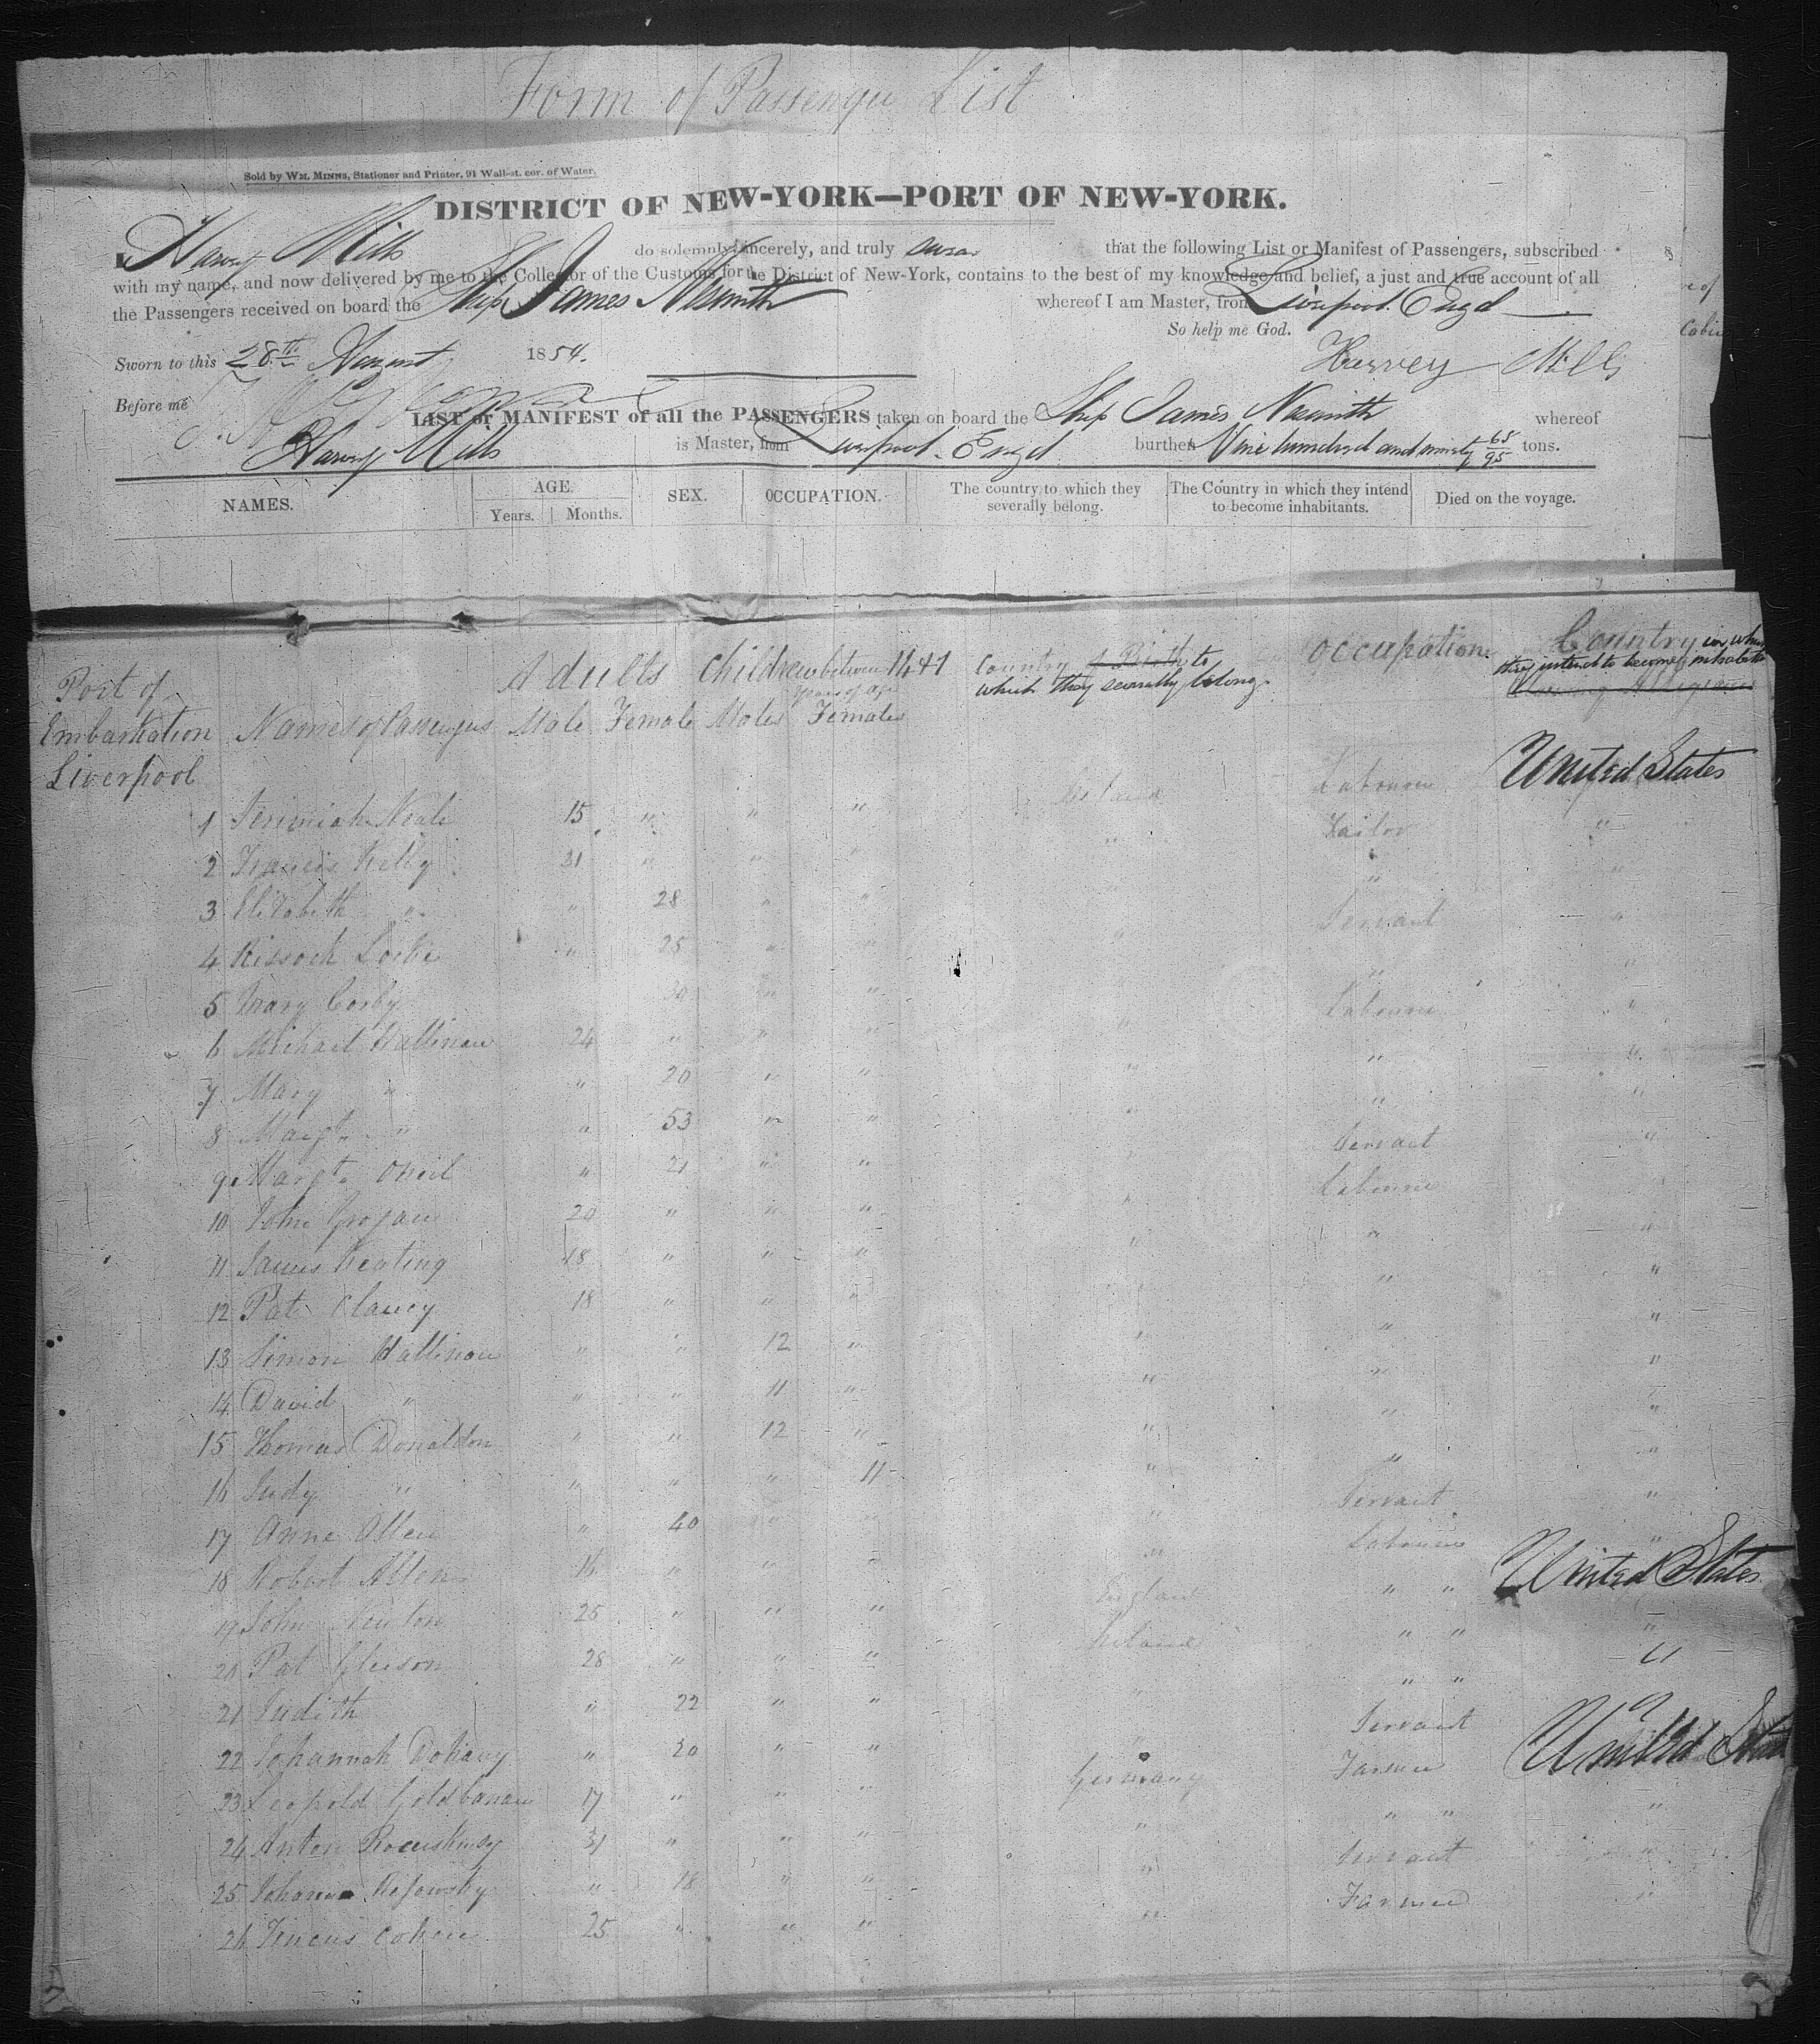 Form of Passenger List
Sold by WM. MINNS, Stationer and Printer, 91 Wall-st. cor. of Water.
DISTRICT OF NEW-YORK—PORT OF NEW-YORK.
I, Harvey Mills do solemnly, sincerely, and truly swear that the following List or Manifest of Passengers, subscribed
with my name, and now delivered by me to the Collector of the Customs for the District of New-York, contains to the best of my knowledge and belief, a just and true account of all
the Passengers received on board the Ship James Nesmith whereof I am Master, from Liverpool. Engd
So help me God.
Sworn to this 28th August 1854.
Harvey Mills
Before me
LIST or MANIFEST of all the PASSENGERS taken on board the Ship James Nesmith whereof
Harvey Mills is Master, from Liverpool. Engd burthen Nine hundred and ninety 68/95 tons.
NAMES. AGE. Years. Months. SEX. OCCUPATION. The country to which they severally belong. The Country in which they intend to become inhabitants. Died on the voyage.
Port of Embarkation Names of Passengers Adults Male Female Children between 14 & 1 years of age Males Females Country of Birth to which they severally belong. Occupation Country in which they intend to become inhabitants
Liverpool
1 Jerimiah Neale 15 " " " Ireland Labourer United States
2 Francis Kelly 31 " " " " Tailor "
3 Elizabeth " " 28 " " " "
4 Kissock Lockie " 25 " " " Servant "
5 Mary Corby 30 " " " " "
6 Michael Hallinan 24 " " " " Labourer "
7 Mary " " 20 " " " " "
8 Margt " " 53 " " " " "
9 Margt Oneil " 21 " " " Servant "
10 John Grogan 20 " " " " Labourer
11 James Keating 18 " " " " " "
12 Pat Clancy 18 " " " " "
13 Simon Hallinan " " 12 " " " "
14 David " " " 11 " " " "
15 Thomas Donaldon " " 12 " " " "
16 Judy " " " " 11 " " "
17 Anne Allen " 40 " " " Servant "
18 Robert Allen 16 " " " " Labourer "
19 John Newton 25 " " " England " " United States
20 Pat Gleeson 28 " " " Ireland " " "
21 Judith " 22 " " " " " "
22 Johannah Dohany " 20 " " " Servant "
23 Leopold 17 " " " Germany Farmer United States
24 Anton 31 " " " " " " "
25 Johanna " 18 " " " Servant "
26 Cohen 25 " " " " Farmer "